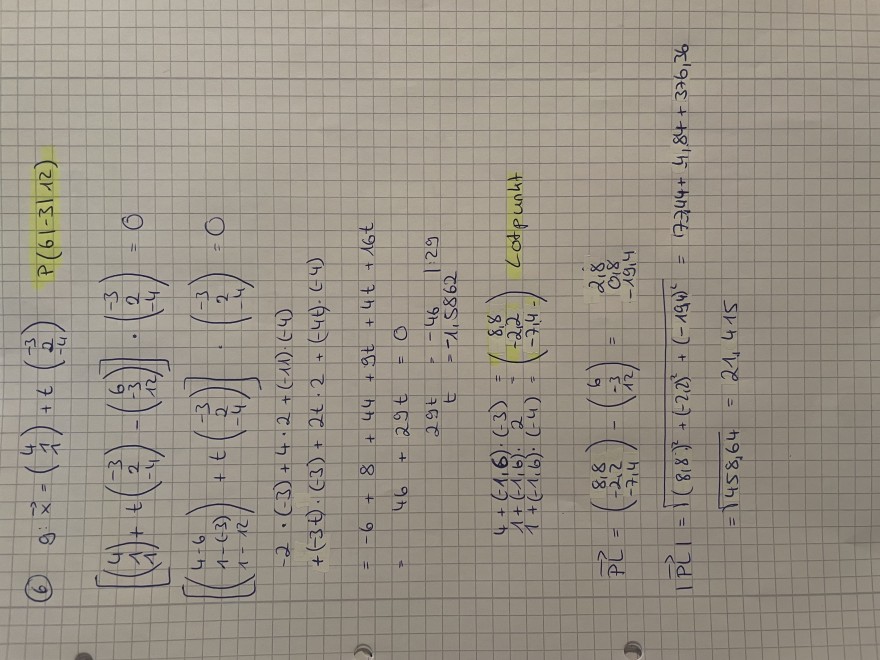 ⑥ g: x⃗ = (4 1 1) + t (-3 2 -4) P(6|-3|12)
[(4 1 1) + t (-3 2 -4) - (6 -3 12)] · (-3 2 -4) = 0
[(4-6 1-(-3) 1-12) + t (-3 2 -4)] · (-3 2 -4) = 0
-2 · (-3) + 4 · 2 + (-11) · (-4)
+ (-3t) · (-3) + 2t · 2 + (-4t) · (-4)
= -6 + 8 + 44 + 9t + 4t + 16t
= 46 + 29t = 0
29t = -46 |:29
t = -1,5862
4 + (-1,6) · (-3) = (8,8
1 + (-1,6) · 2 = -2,2 Lotpunkt
1 + (-1,6) · (-4) = -7,4)
PL⃗ = (8,8 -2,2 -7,4) - (6 -3 12) = 2,8 0,8 -19,4
|PL⃗| = √(8,8)² + (-2,2)² + (-19,4)² = (77,44 + 4,84 + 376,36
= √458,64 = 21,415